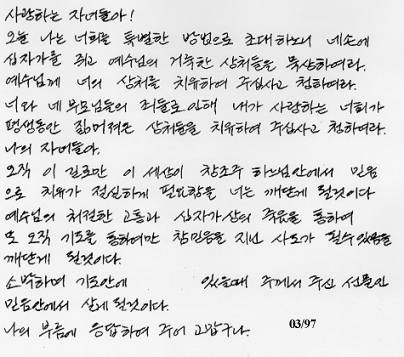 사랑하는 자녀들아!
오늘 나는 너희를 특별한 방법으로 초대하노니 네손에
십자가를 쥐고 예수님의 거룩한 상처들을 묵상하여라.
예수님께 너의 상처를 치유하여 주십사고 청하여라.
너와 네 부모님들의 죄들로 인해 내가 사랑하는 너희가
평생동안 짊어져온 상처들을 치유하여 주십사고 청하여라.
나의 자녀들아.
오직 이 길로만 이 세상이 창조주 하느님안에서 믿음
으로 치유가 절실하게 필요함을 너는 깨닫게 될것이다
예수님의 처절한 고통과 십자가상의 죽음을 통하여
또 오직 기도를 통하여만 참믿음을 지닌 사도가 될수있음을
깨닫게 될것이다.
소박하며 기도안에 있을때 주께서 주신 선물인
믿음안에서 살게 될것이다.
나의 부름에 응답하여 주어 고맙구나.
03/97